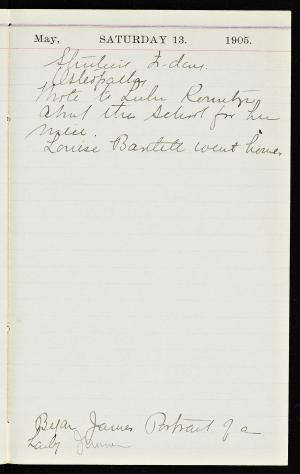 May, SATURDAY 13. 1905.
Studied to-day.
Osteopathy
Wrote to Lulu Rountree
about the School for her
niece.
Louise Bartlett went home.
Began James Portrait of a
Lady